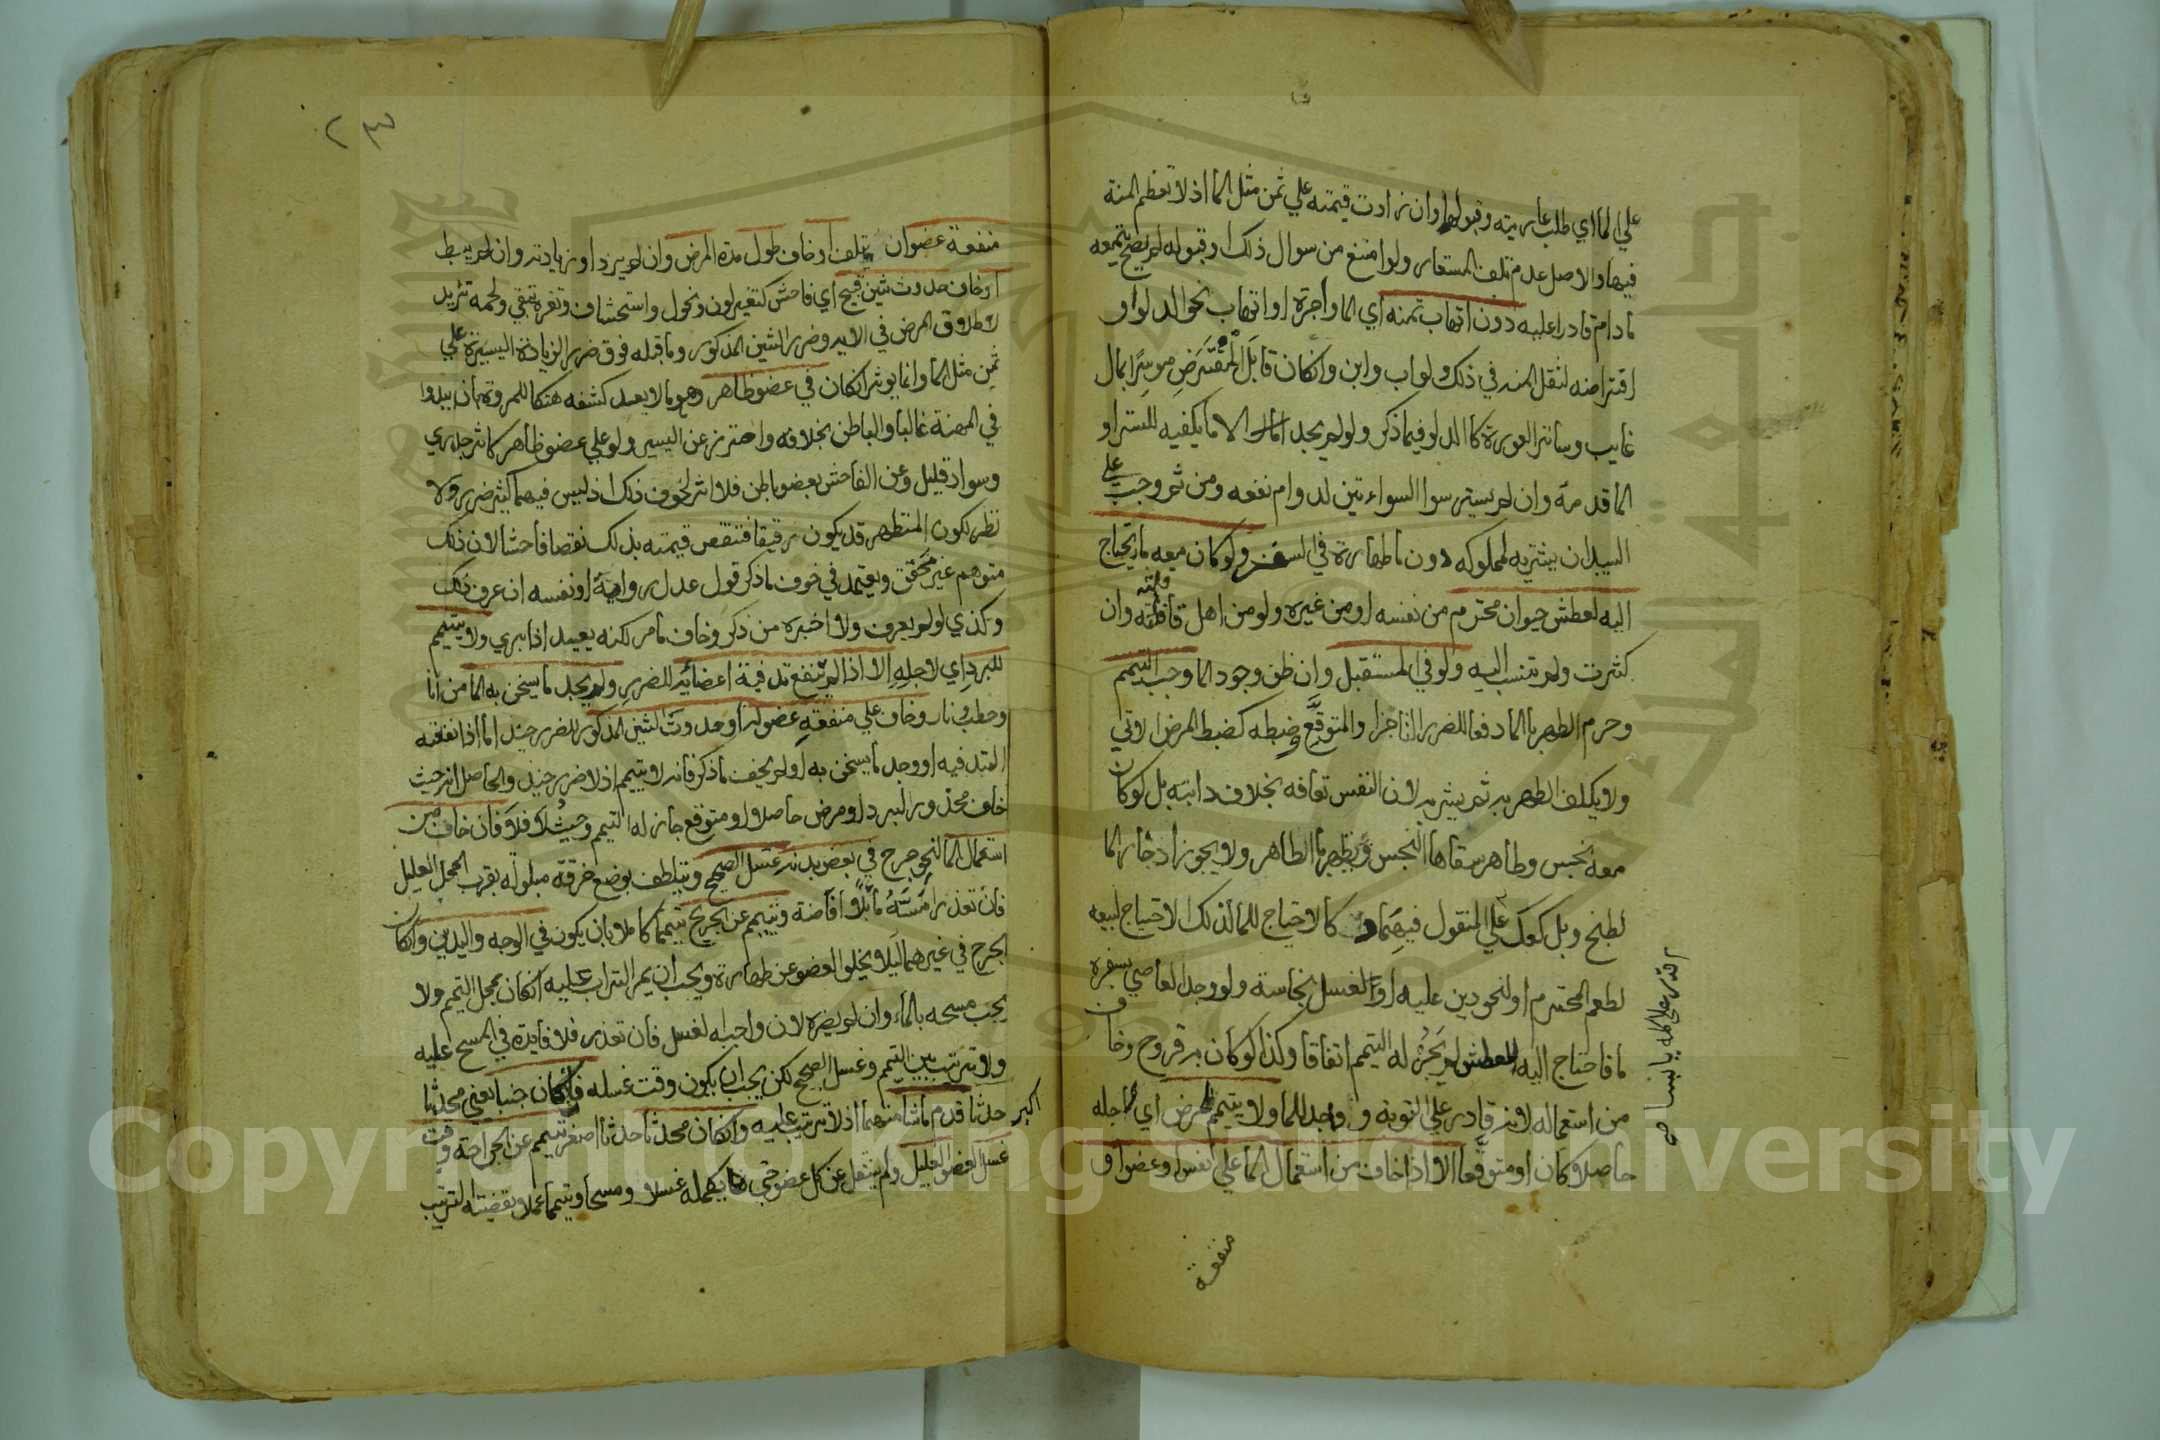 على الما اي طلب عاريته وقبولها وان زادت قيمته علي ثمن مثل الما اذ لا تعظم المنة
فيها والاصل عدم تلف المستعار ولو امتنع من سوال ذلك او قبوله لم يصح تيممه
ما دام قادرا عليه دون اتهاب ثمنه اي الما واجرة او اتهاب نحو الدلو او
اقتراضه لثقل المنه في ذلك ولو اب وابن وانكان قابَل المقتَرَضِ موسِرًا بمال
غايب وساتر العورة كالدلو فيما ذكر ولو لم يجد الا ما يكفيه للستر او
الما قدمه وان لم يستر سوا السواءتين لدوام نفعه ومن ثم وجب على
السيد ان يشتريه لمملوكه دون ما طهارة في السفر ولو كان معه ما يحتاج
اليه لعطش حيوان محترم من نفسه او من غيره ولو من اهل قافلته وان
كثرت ولم تنسب اليه ولو في المستقبل وان ظن وجود الما وجب التيمم
وحرم الطهر بالما دفعا للضرر الناجز او المتوقَّع وضبطه كضبط المرض الاتي
ولا يكلف الطهر به ثم يشربه لان النفس تعافه بخلاف دابته بل لو كان
معه نجس وطاهر سقاها النجس وتطهر بالطاهر ولا يجوز ادخار الما
لطبخ وبل كعك علي المنقول فيهما كالاحتياج للما لذلك الاحتياج لبيعه
لطعم المحترم او لنحو دين عليه او لغسل نجاسة ولو وجد العاصي بسفره
ما فاحتاج اليه للعطش لم يَجُز له التيمم اتفاقا وكذا لو كان به قروح وخاف
من استعماله لانه قادر علي التوبه و واجد للما ولا يتيمم لمرض اي لاجله
حاصلا كان او متوقَّعا الا اذا خاف من استعمال الما علي نفس او عضو او
منفعة
منفعة عضو ان تتلف او خاف طول مدة المرض وان لم يزد او زيادته وان لم يبط
او خاف حدوث شين قبيح اي فاحش كتغير لون ونحول واستحشاف وثغرة تبقي ولحمه تزيد
لاطلاق المرض في الاية وضرر الشين المذكور وما قبله فوق ضرر الزيادة اليسيرة علي
ثمن مثل الما وانما يوثر انكان في عضو ظاهر وهو ما لا يعد كشفه هتكا للمروة بان يبدوا
في المهنة غالبا والباطن بخلافه واحترز عن اليسير ولو علي عضو ظاهر كاثر جدري
وسواد قليل وعن الفاحش بعضو باطن فلا اثر لخوف ذلك اذ ليس فيهما كثير ضرر ولا
نظر لكون المتطهر قد يكون رقيقا فتنقص قيمته بذلك نقصا فاحشا لان ذلك
متوهم غير محَقق ويعتمد في خوف ما ذكر قول عدل رواية او نفسه ان عرف ذلك
وكذي لو لم يعرف ولا اخبره من ذكر وخاف ما مر لكنه يعيد اذا بري ولا يتيمم
للبرد اي لاجله الا اذا لم تنفع تدفية اعضائه للضرر ولم يجد ما يسخن به الما من انا
وحطب ونار وخاف علي منفعة عضو له او حدوث الشين المذكور للضرر حينئذ اما اذا نفعته
التدفيه او وجد ما يسخن به او لم يخف ما ذكر فانه لا يتيمم اذ لا ضرر حينئذ والحاصل انه حيث
خاف محذورا لبرد او مرض حاصلا او متوقع جاز له التيمم وحيث لا فلا فان خاف من
استعمال الما لنحو جرح في بعض بدنه غسل الصحيح ويتلطف بوضع خرقة مبلولة بقرب المحل العليل
فان تعذر امَسَّهُ مابلا افاضة وتيمم عن الجريح تيمما كاملا بان يكون في الوجه واليدين وان كان
الجرح في غيرهما ليلا يخلوا العضو عن طهارة ويجب ان يمر التراب عليه انكان بمحل التيمم ولا
يجب مسحه بالماء وان لم يضره لان واجبه الغسل فان تعذر فلا فايدة في المسح عليه
ولا ترتيب بين التيمم وغسل الصحيح لكن يجب ان يكون وقت غسله فان كان جنبا يعني محدثا
حدثا اكبر قدم ما شا منهما اذ لا ترتيب عليه وانكان محدثا حدثا اصغر تيمم عن الجراحة وقت
غسل العضو العليل ولم ينتقل عن كل عضو حتي يكمله غسلا ومسحا وتيمما عملا بقضية الترتيب